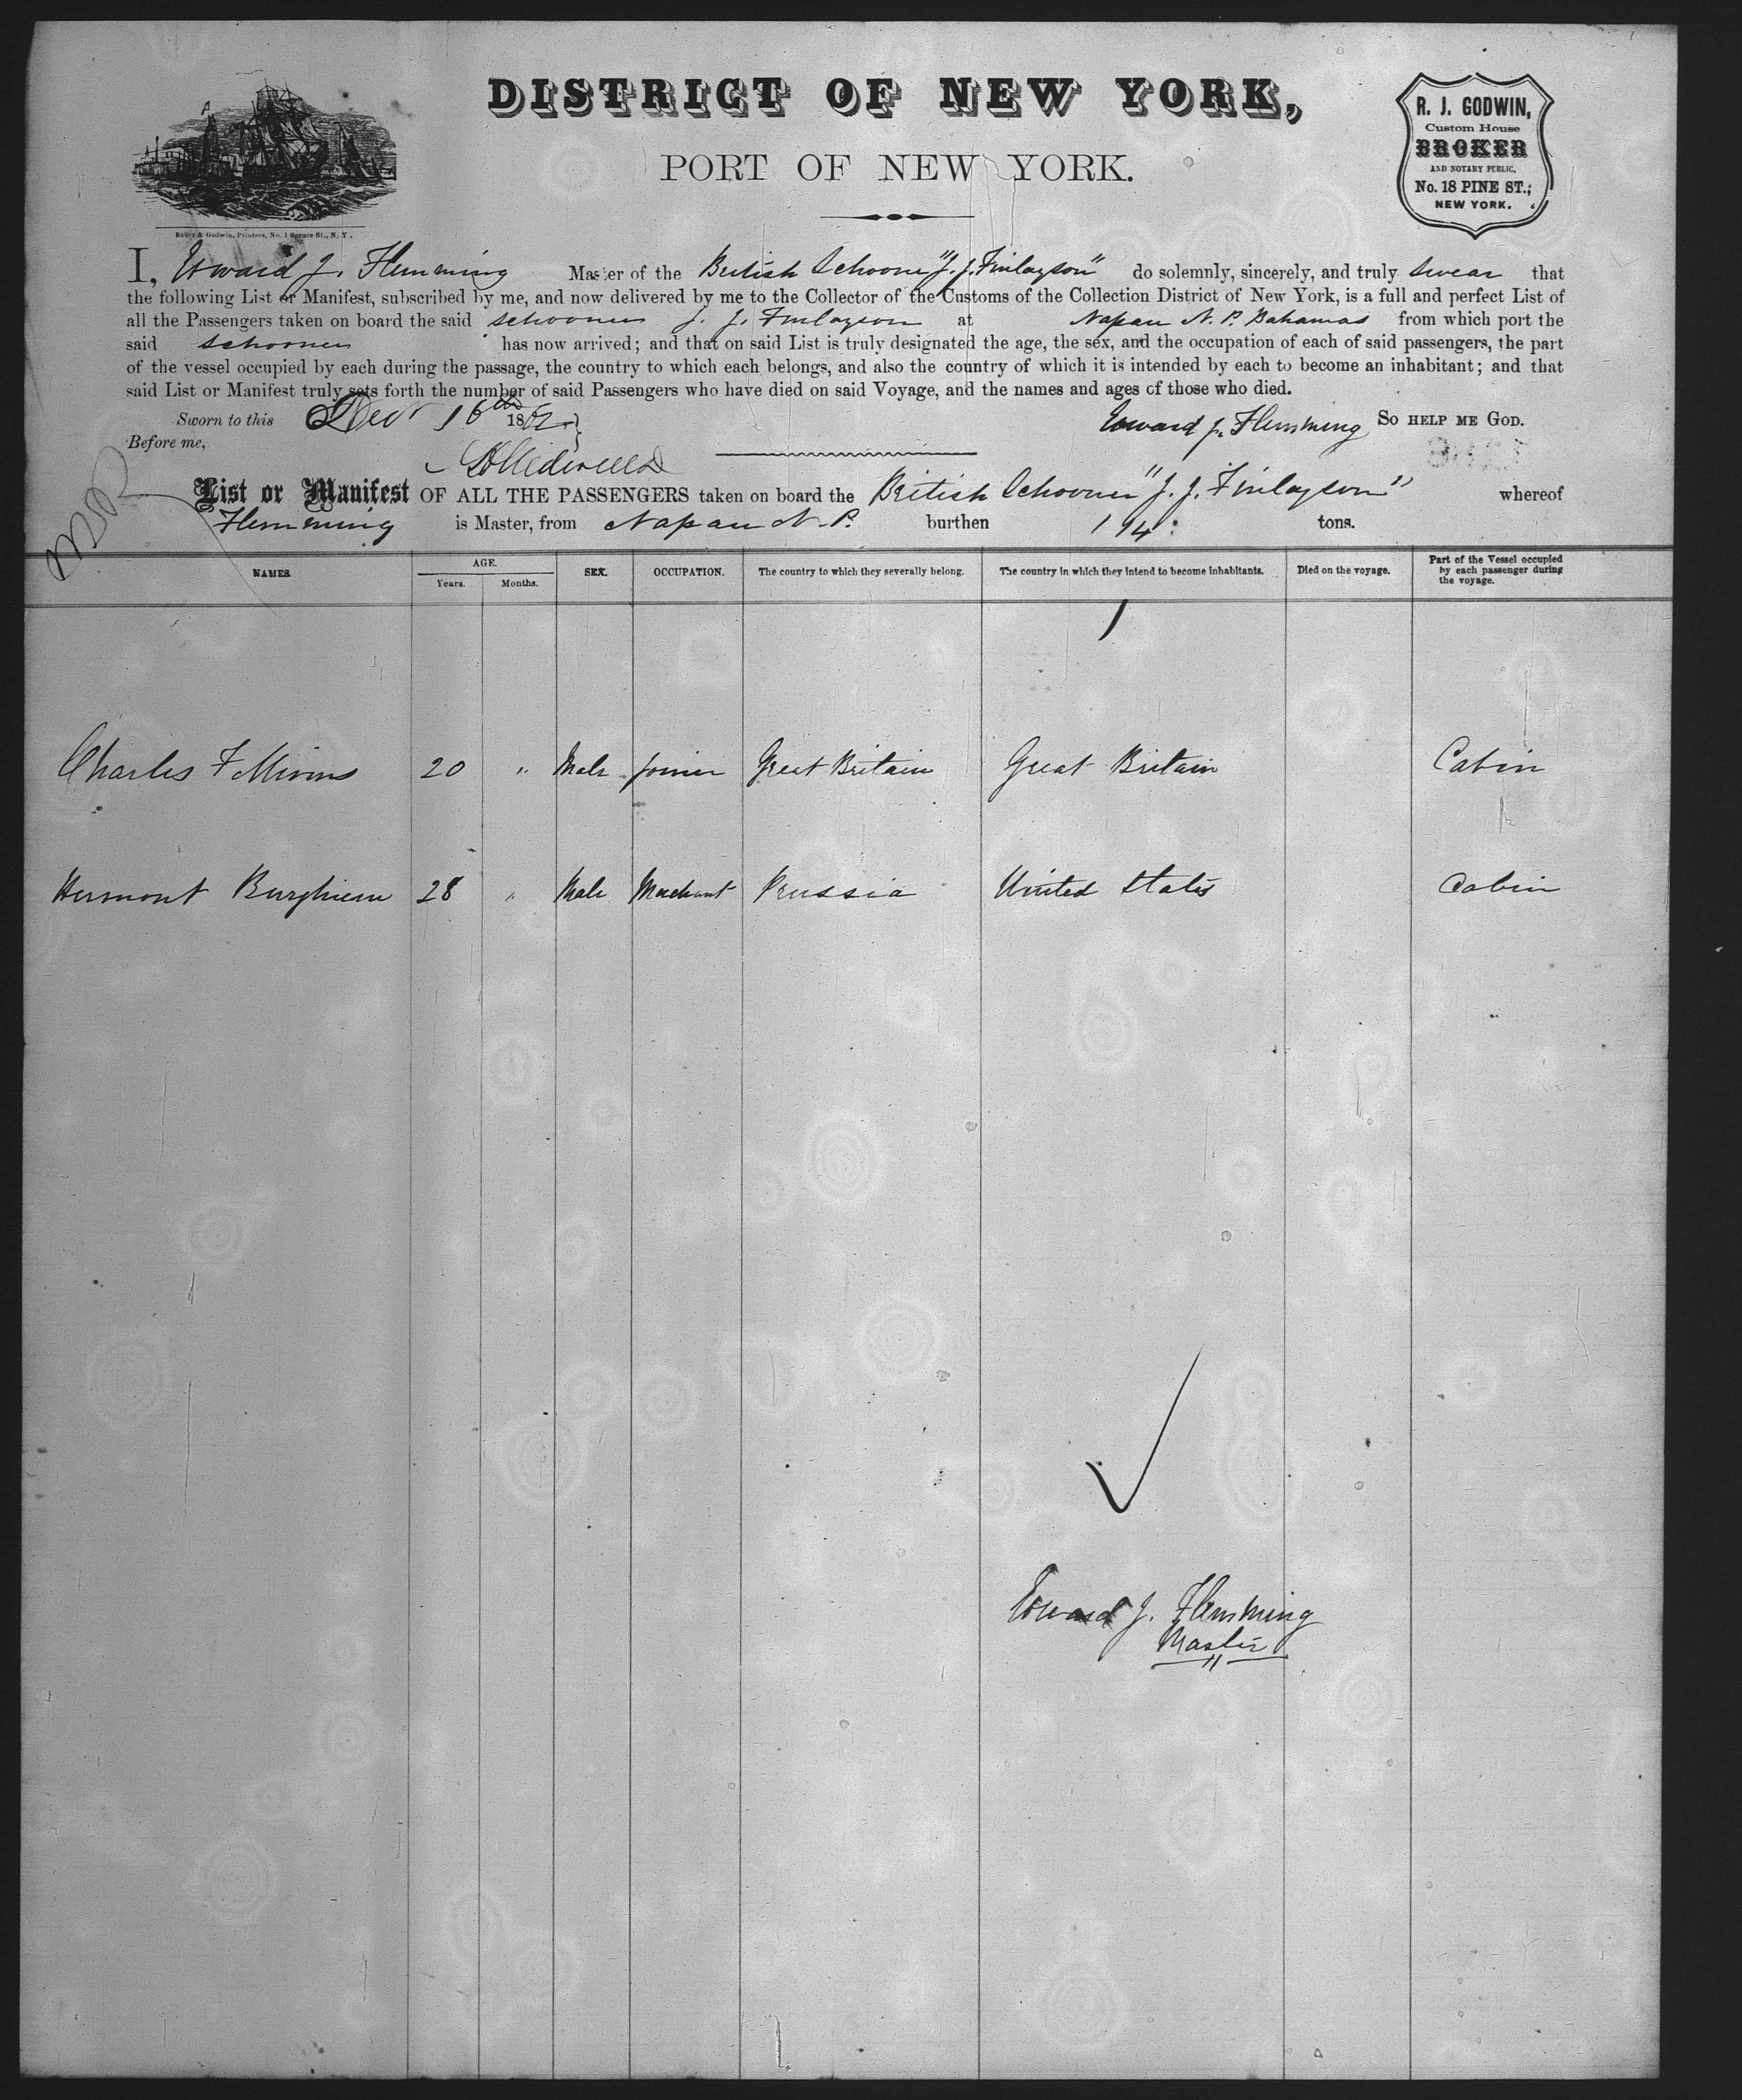 DISTRICT OF NEW YORK,
PORT OF NEW YORK.
R. J. GODWIN,
Custom House
BROKER
AND NOTARY PUBLIC,
No. 18 PINE ST.;
NEW YORK.
Baker & Godwin, Printers, No. 1 Spruce St., N. Y.
I, Edward J. Flemming Master of the British Schooner "J. J. Finlayson" do solemnly, sincerely, and truly swear that
the following List or Manifest, subscribed by me, and now delivered by me to the Collector of the Customs of the Collection District of New York, is a full and perfect List of
all the Passengers taken on board the said schooner J. J. Finlayson at Nassau N. P. Bahamas from which port the
said schooner has now arrived; and that on said List is truly designated the age, the sex, and the occupation of each of said passengers, the part
of the vessel occupied by each during the passage, the country to which each belongs, and also the country of which it is intended by each to become an inhabitant; and that
said List or Manifest truly sets forth the number of said Passengers who have died on said Voyage, and the names and ages of those who died.
Sworn to this Decr 16th 186 Edward J. Flemming SO HELP ME GOD.
Before me,
List or Manifest OF ALL THE PASSENGERS taken on board the British Schooner "J. J. Finlayson" whereof
Flemming is Master, from Nassau N. P. burthen 194 tons.
NAMES. AGE. SEX. OCCUPATION. The country to which they severally belong. The country in which they intend to become inhabitants. Died on the voyage. Part of the Vessel occupied by each passenger during the voyage.
Years. Months.
Charles F 20 " Male joiner Great Britain Great Britain Cabin
Hermont 28 " Male Merchant Prussia United States Cabin
Edward J. Flemming
Master